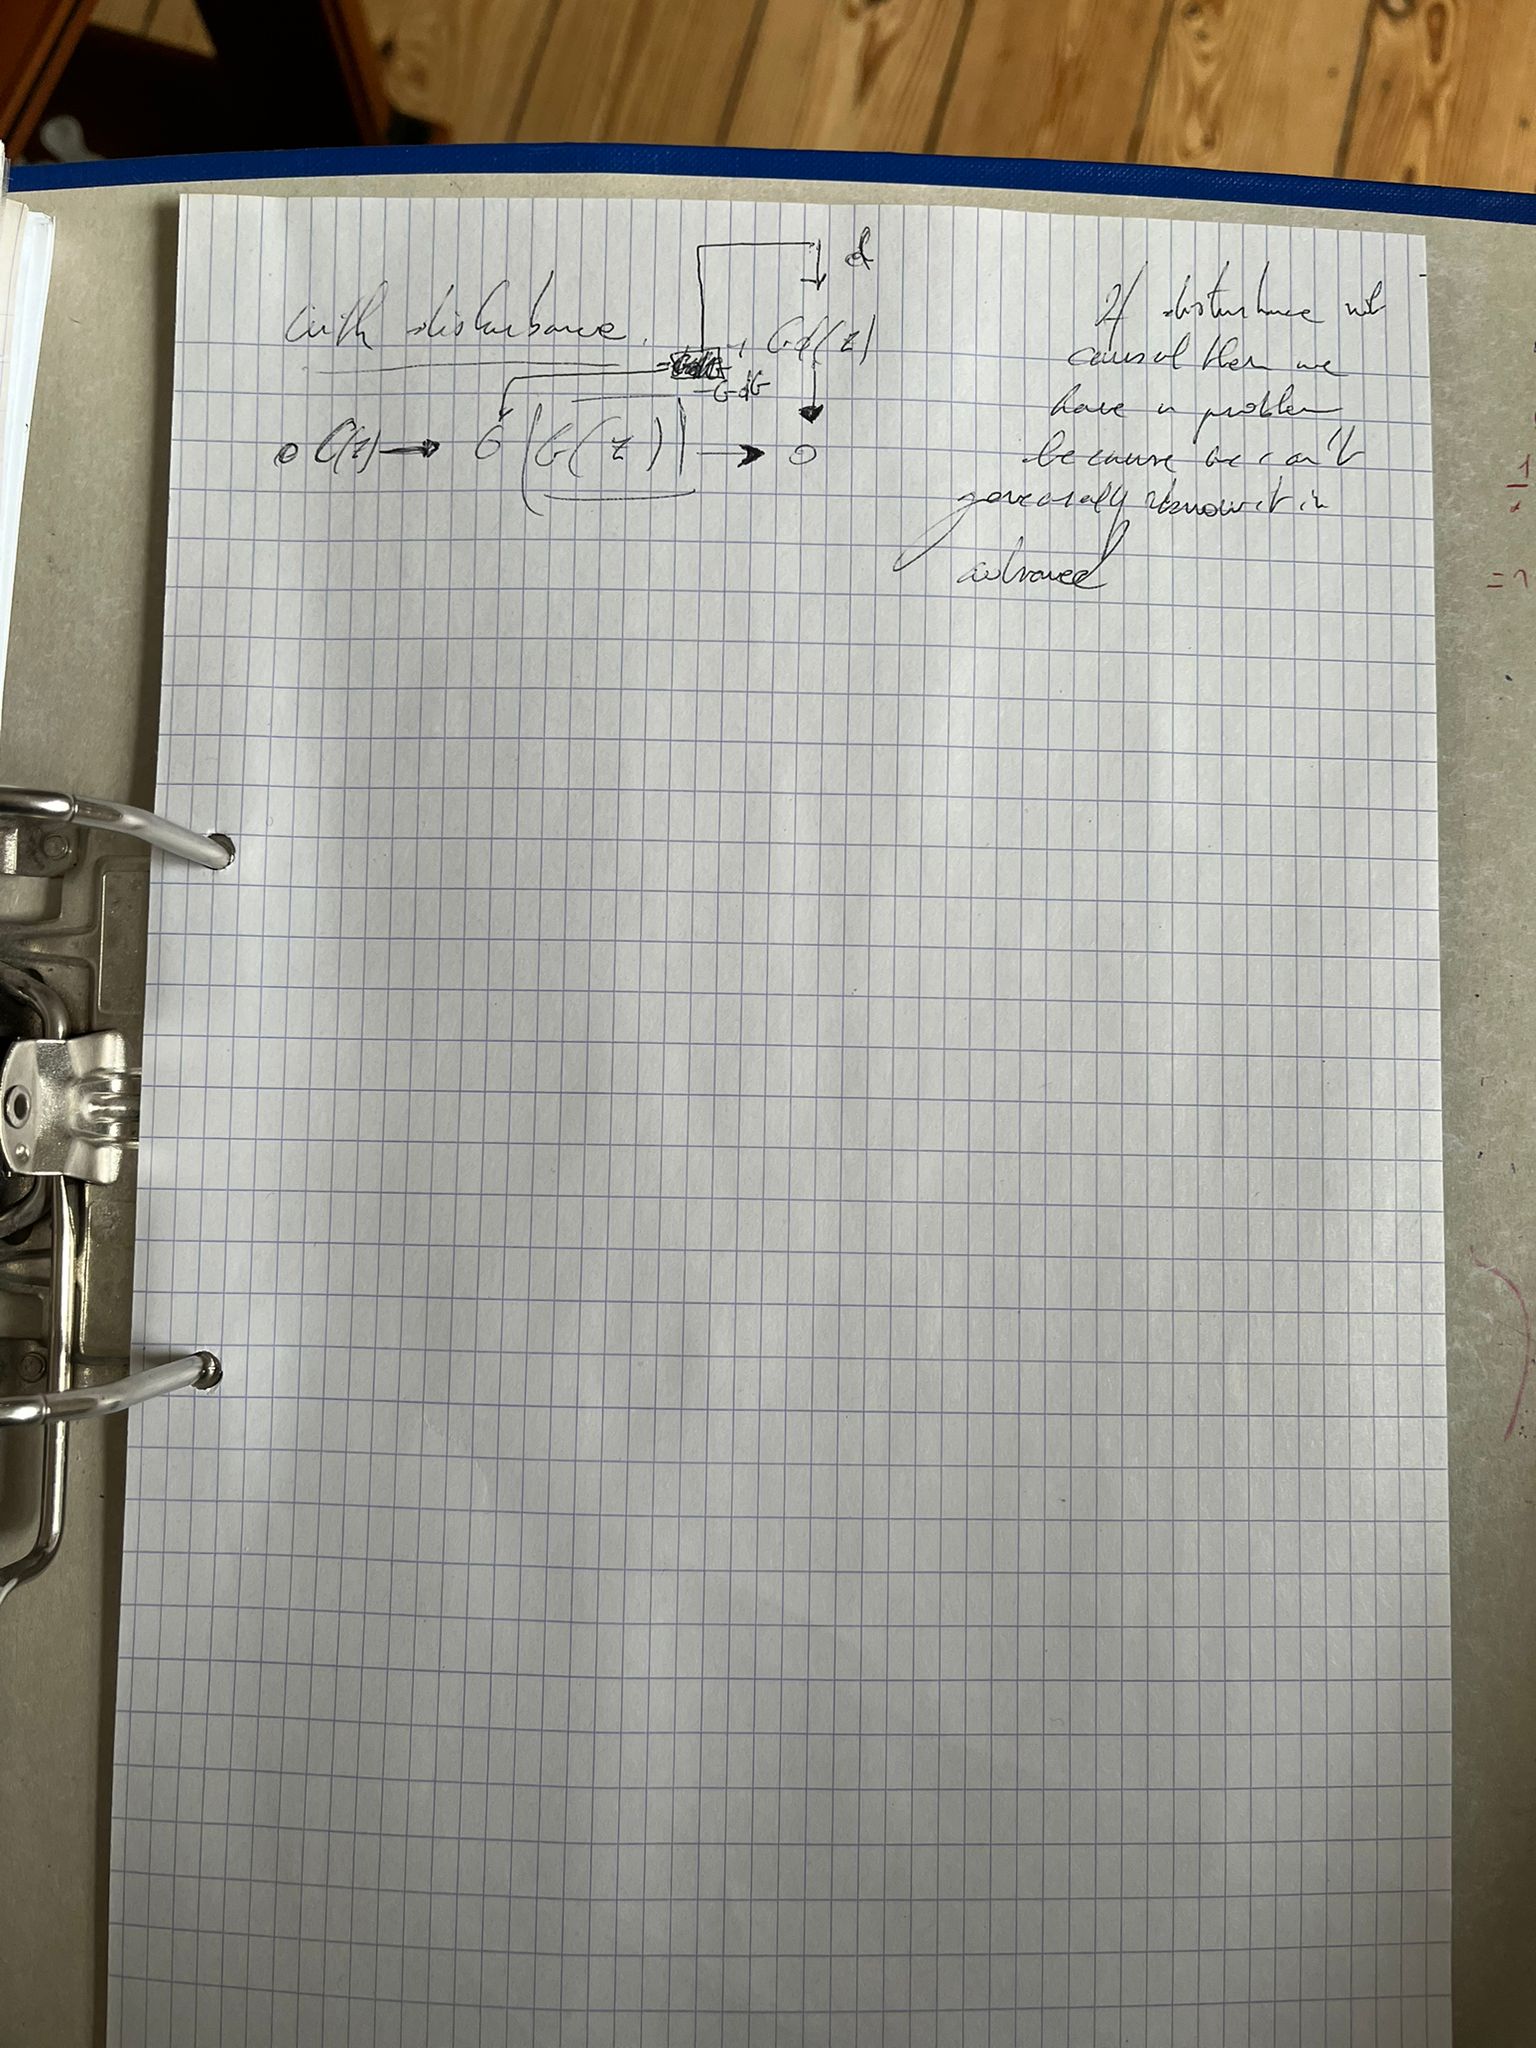 d
with disturbance.
Gd(z)
C(z) G(z)
If disturbance not
causal then we
have a problem
because we can't
generally know it in
advanced